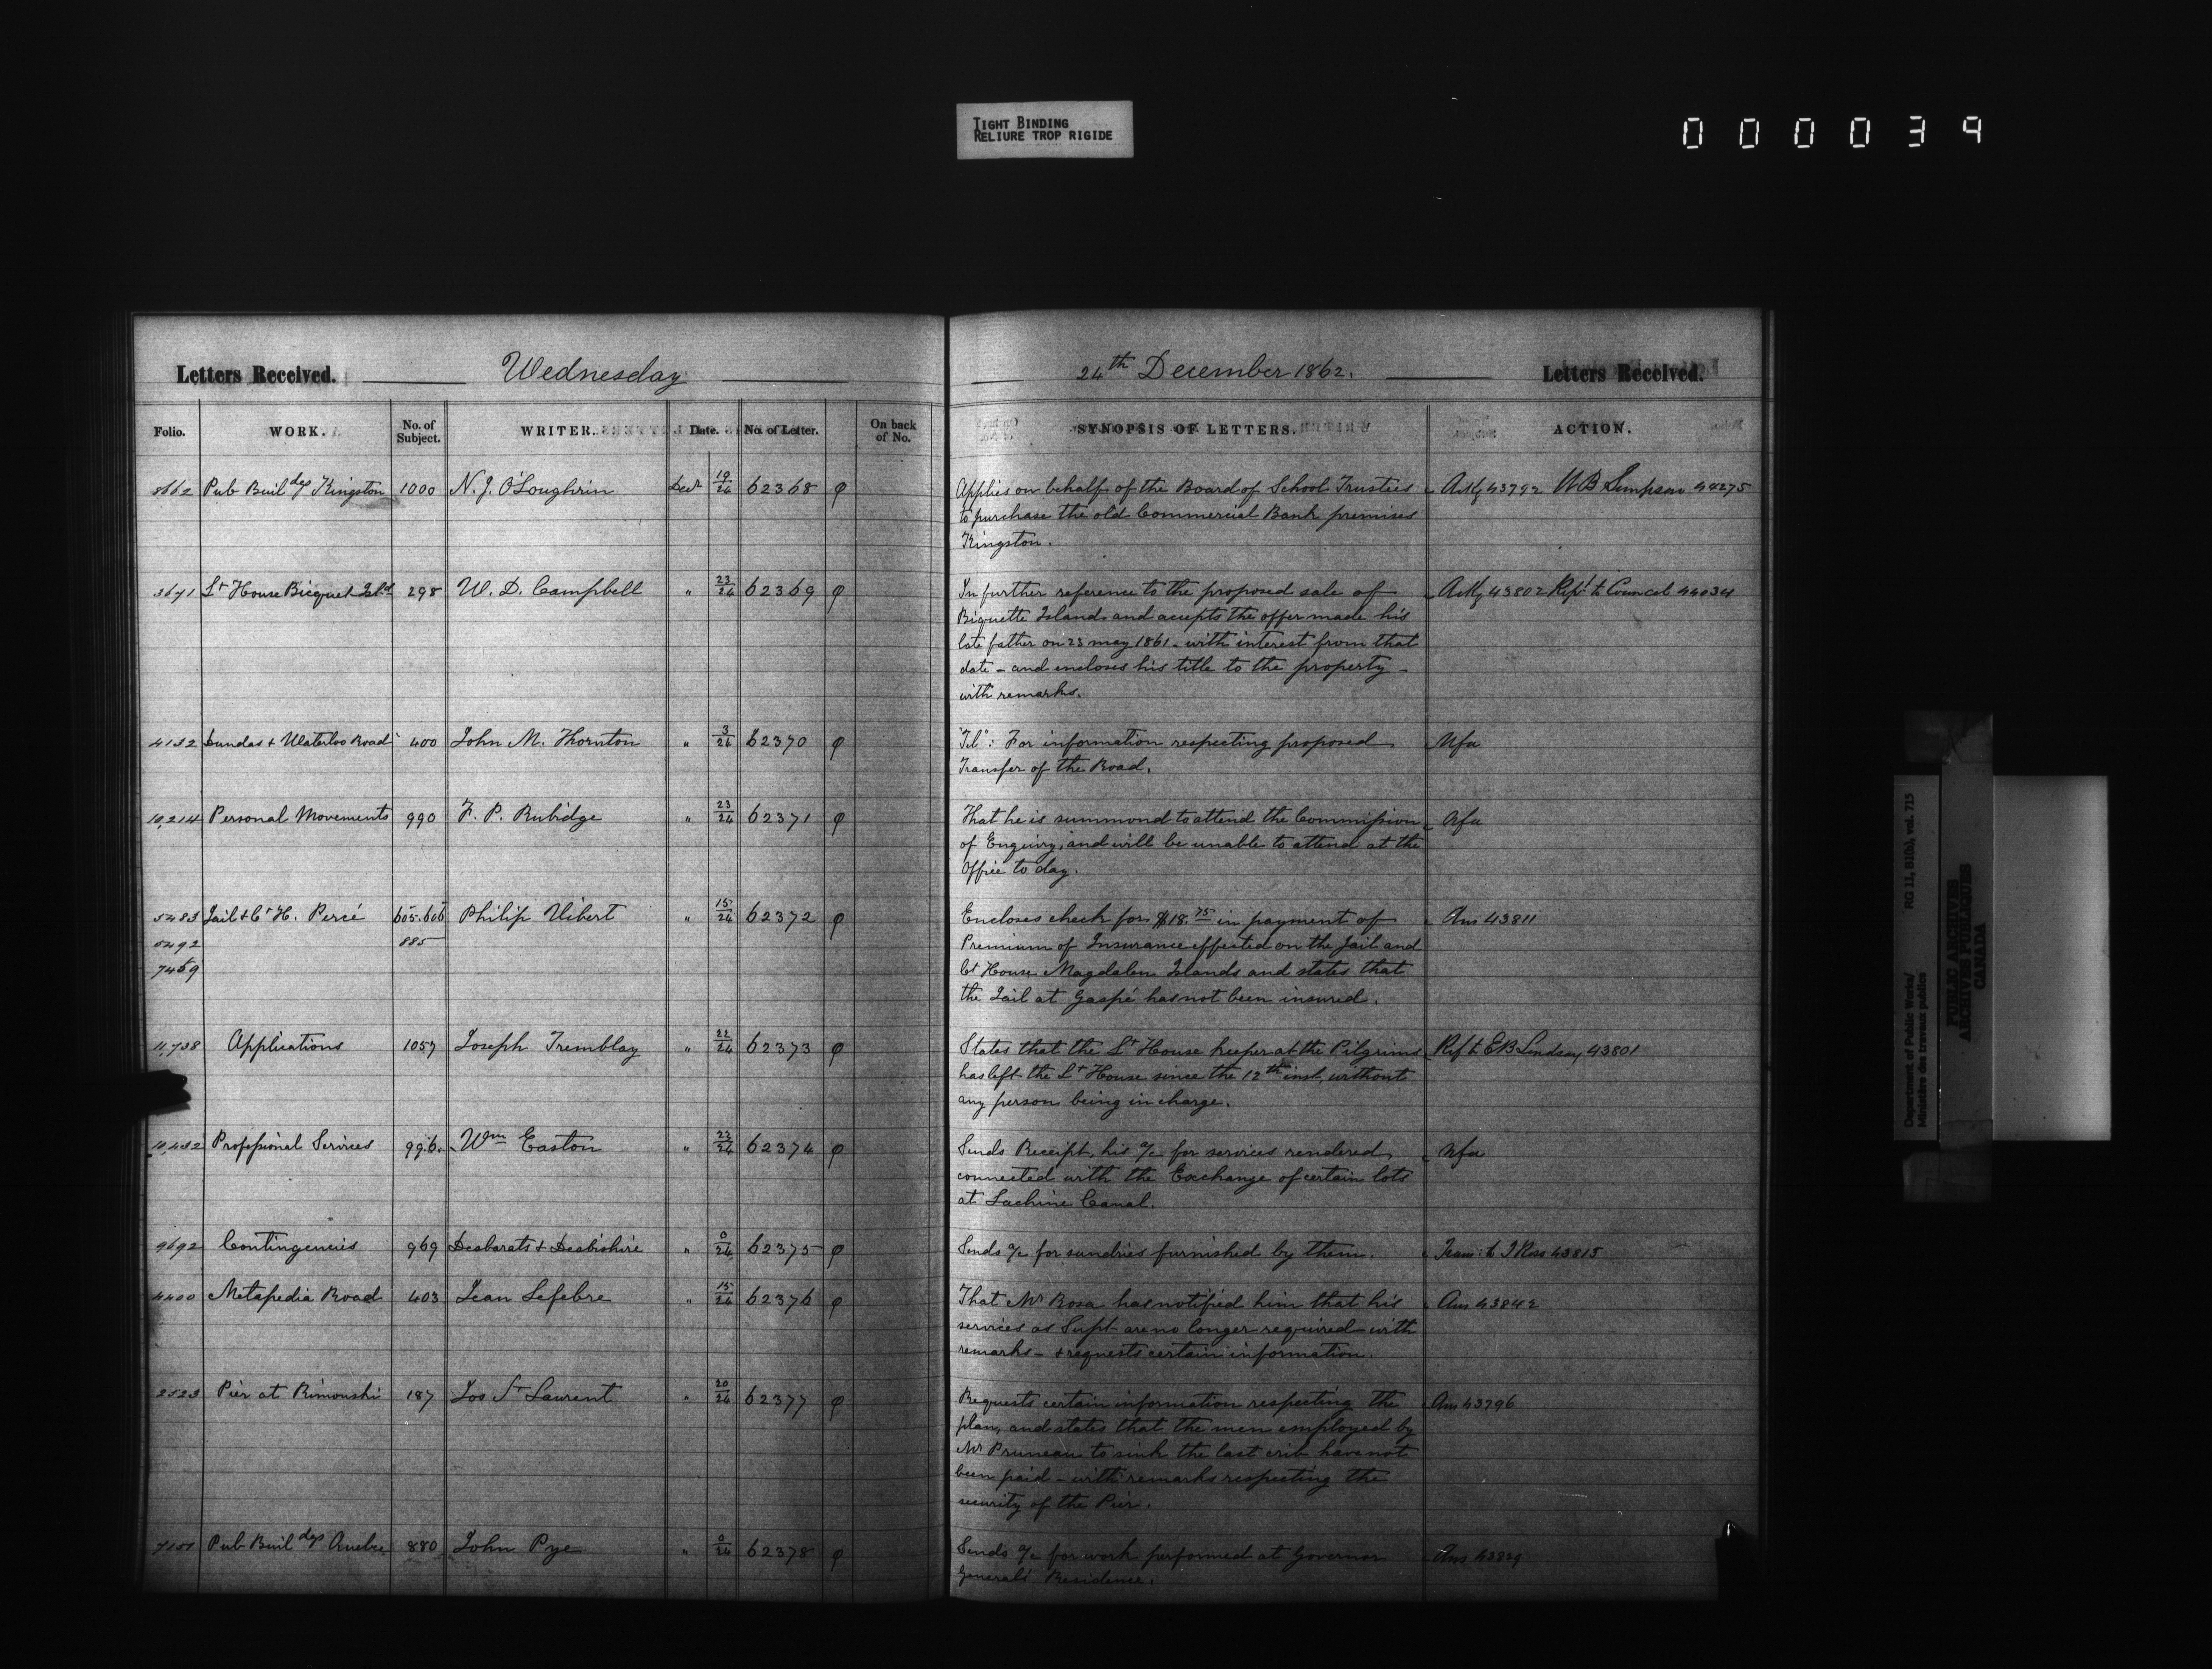 TIGHT BINDING
RELIURE TROP RIGIDE
000039
Letters Received. Wednesday 24th December 1862. Letters Received.
Folio. WORK. No. of Subject. WRITER. Date. No. of Letter. On back of No. SYNOPSIS OF LETTERS. ACTION.
8662 Pub Buildgs Kingston 1000 N. J. O'Loughrin Decr 19/24 62368 φ Applies on behalf of the Board of School Trustees Ackg 43792 W B Simpson 44275
to purchase the old Commercial Bank premises
Kingston.
3671 Lt House Bicquet Isld 298 W. D. Campbell " 23/24 62369 φ In further reference to the proposed sale of Ackg 43802 Rept to Council 44034
Biquette Island and accepts the offer made his
late father on 23 may 1861 - with interest from that
date - and encloses his title to the property -
with remarks.
4132 Dundas & Waterloo Road 400 John M. Thornton " 3/24 62370 φ "Tel": For information respecting proposed Nfa
Transfer of the Road.
10,214 Personal Movements 990 F. P. Rubidge " 23/24 62371 φ That he is summond to attend the Commission Nfa
of Enquiry, and will be unable to attend at the
Office to day.
5483 Jail & Ct H. Percé 605.606 Philip Vibert " 15/24 62372 φ Encloses check for $18.75 in payment of Ans 43811
5492 885 Premium of Insurance effected on the Jail and
7469 Ct House Magdalen Islands and states that
the Jail at Gaspé has not been insured.
11,738 Applications 1057 Joseph Tremblay " 22/24 62373 φ States that the Lt House keeper at the Pilgrims Ref to E B Lindsay 43801
has left the Lt House since the 12th inst, without
any person being in charge.
10,432 Professional Services 996. Wm Easton " 22/24 62374 φ Sends Receipt, his a/c for services rendered Nfa
connected with the Exchange of certain lots
at Lachine Canal.
9692 Contingencies 969 Desbarats & Desbishire " 0/24 62375 φ Sends a/c for sundries furnished by them. Trans: to J Ross 43815
4400 Metapedia Road 403 Jean Lefebre " 15/24 62376 φ That Mr Rosa has notified him that his Ans 43842
services as Supt are no longer required with
remarks - & requests certain information.
2523 Pier at Rimouski 187 Jos St Laurent " 20/24 62377 φ Requests certain information respecting the Ans 43796
plan, and states that the men employed by
Mr Pruneau to sink the last crib have not
been paid - with remarks respecting the
security of the Pier.
7151 Pub Buildgs Quebec 880 John Pye " 0/24 62378 φ Sends a/c for work performed at Governor Ans 43829
General's Residence.
Department of Public Works/ RG 11, B1(b), vol. 715
Ministère des travaux publics
PUBLIC ARCHIVES
ARCHIVES PUBLIQUES
CANADA